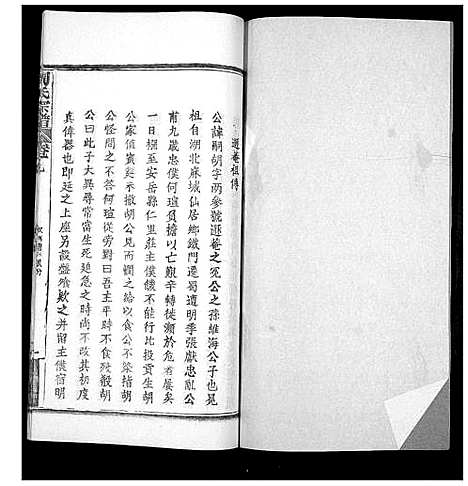 遯菴祖傳
公諱嗣胡字兩參號遯菴之冕公之孫維海公子也見
祖自湖北麻城仙居鄉鐵門遷蜀遭明季張獻忠亂公
甫九歲僕何瑄負擔以亡艱辛轉徙瀕於危者屢矣
一日猴至安岳縣仁里莊主僕饑不能行比投貢生胡
公家值賓筵示撤胡公見而憫之以食公不染指胡
公怪問之不答何瑄對曰吾主平時不食殘殽胡
公曰此子大異尋常當生死廹急之時尚不改其初度
真偉器也即延之上座另設盤飱欵之并留主僕宿明
氏宗譜